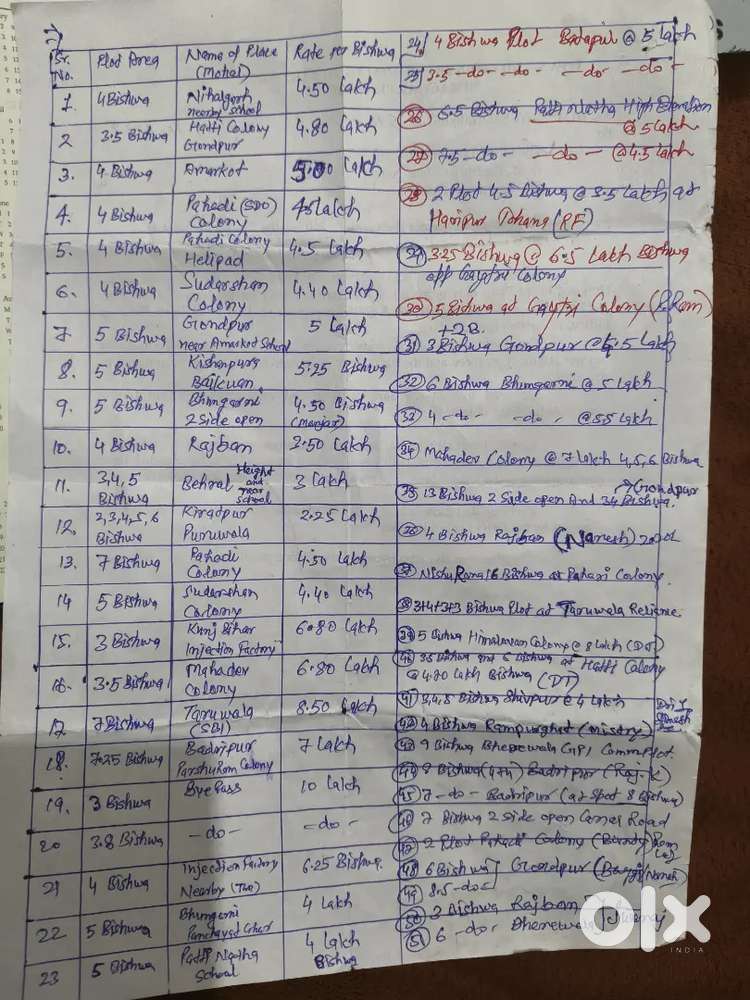 Sr. No. Plot Area Name of Place (Mohal) Rate per Bishwa
1 4 Bishwa Nihalgarh nearby School 4.50 Lakh
2 3.5 Bishwa Hatti Colony Gondpur 4.80 Lakh
3. 4 Bishwa Amarkot 5.00 Lakh
4. 4 Bishwa Pahadi (SDO) Colony Lakh
5. 4 Bishwa Pahadi Colony Helipad 4.5 Lakh
6. 4 Bishwa Sudarshan Colony 4.40 Lakh
7 5 Bishwa Gondpur near Amarkot School 5 Lakh
8. 5 Bishwa Kishanpura 5.25 Bishwa
9. 5 Bishwa Bhungarni 2 Side open 4.50 Bishwa
10. 4 Bishwa Rajban 2.50 Lakh
11. 3,4,5 Bishwa Behral Height and near School 3 Lakh
12. 2,3,4,5,6 Bishwa Kiratpur Puruwala 2.25 Lakh
13. 7 Bishwa Pahadi Colony 4.50 Lakh
14 5 Bishwa Sudarshan Colony 4.40 Lakh
15. 3 Bishwa Kunj Bihar Injection Factory 6.80 Lakh
16. 3.5 Bishwa Mahadev Colony 6.80 Lakh
17 7 Bishwa Taruwala (SBI) 8.50 Lakh
18. 7.25 Bishwa Badripur Parshuram Colony 7 Lakh
19. 3 Bishwa Bye Pass 10 Lakh
20 3.8 Bishwa -do- -do-
21 4 Bishwa Injection Factory Nearby 6.25 Bishwa.
22 5 Bishwa Bhungarni Panchayat Ghar 4 Lakh
23 5 Bishwa Patti Natha School 4 Lakh Bishwa
24 4 Bishwa Plot @ 5 Lakh
25 3.5 -do- -do- -do- -do-
26 6.5 Bishwa Patti Natha High @ 5 Lakh
27 7.5 -do- -do- @ 4.5 Lakh
28 2 Plot 4.5 Bishwa @ 3.5 Lakh at Haripur Tohana (RF)
29 3.25 Bishwa @ 6.5 Lakh Bishwa opp Gaytri Colony
30 5 Bishwa at Gaytri Colony
+2B.
31 3 Bishwa Gondpur @ 5.5 Lakh
32 6 Bishwa Bhungarni @ 5 Lakh
33 4 -do- -do- @ 5.5 Lakh
34 Mahadev Colony @ 7 Lakh 4,5,6 Bishwa
→Gondpur
35 13 Bishwa 2 Side open And 34 Bishwa.
36 4 Bishwa Rajban (Naresh)
37 Nishu Rana 16 Bishwa at Pahari Colony.
38 3+4+3+3 Bishwa Plot at Taruwala Reliance
39 5 Bishwa Himalayan Colony @ 8 Lakh (DT)
40 3.5 Bishwa and 6 Bishwa at Hatti Colony
@ 4.70 Lakh Bishwa (DT)
41 3,4,8 Bishwa Shivpur @ 4 Lakh
42 4 Bishwa Rampurghat (mistry)
43 9 Bishwa
44 8 Bishwa Badripur
45 7 -do- Badripur (at Spot 8 Bishwa)
46 7 Bishwa 2 Side open Corner Road
47 2 Plot Pahadi Colony
48 6 Bishwa Gondpur
49 8.5 -do-
50 3 Bishwa Rajban
51 6 -do-
olx
INDIA